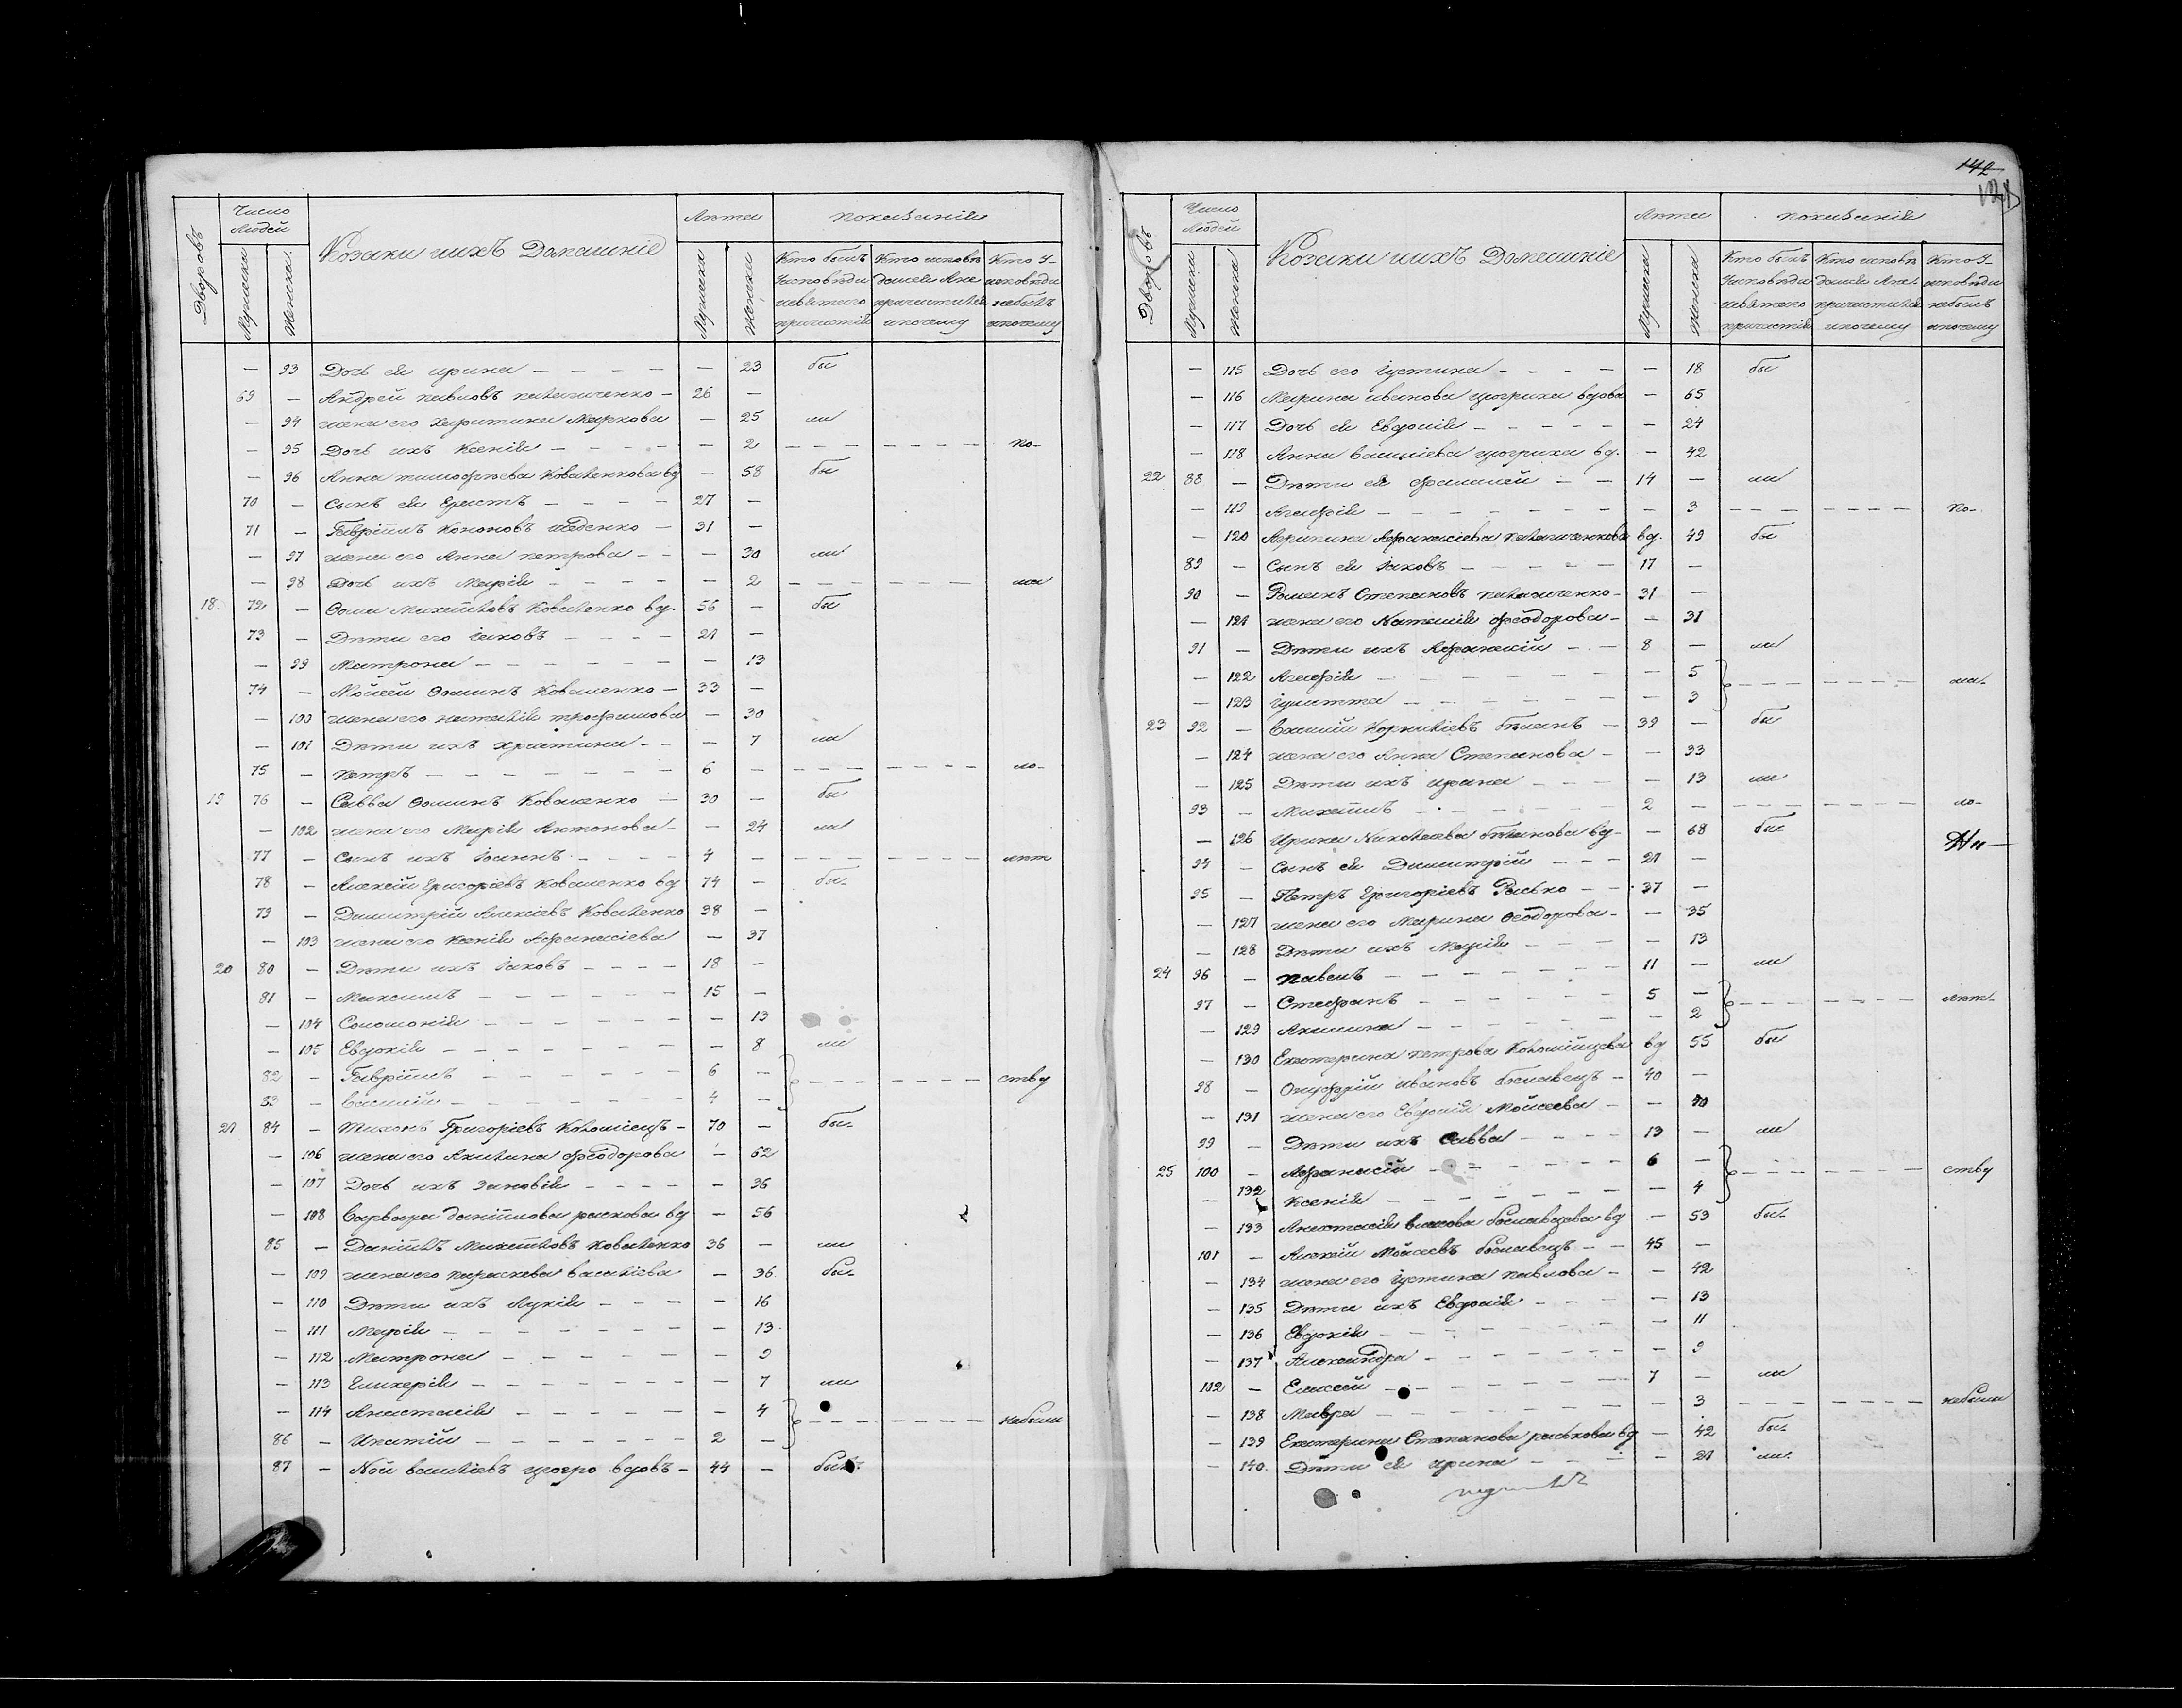 142
Дворовъ
Число Людей
Мужеска
Женска
Козаки ихъ Домашніе
Лѣта
Мужеска
Женска
показанія
Кто былъ
Кто исповѣ
Кто у
– 93 Дочь ея Ирина – 23 бы
69 – Андрей Павловъ 26 –
– 94 жена его Харитина Маркова – 25 ли
– 95 Дочь ихъ Ксенія – 2 по-
– 96 Анна Тимофѣева Коваленкова вд – 58 бы
70 – Сынъ ея Ерастъ 27 –
71 – Гавріилъ Кононовъ 31 –
– 97 жена его Анна Петрова – 30 ли
– 98 Дочь ихъ Марія – 2 ма
18. 72 – Ѳома Михайловъ Коваленко вд. 56 – бы
73 – Дѣти его Іаковъ 21 –
– 99 Матрона – 13
74 – Мойсей Ѳоминъ Коваленко 33 –
– 100 жена его Наталія Трофимова – 30
– 101 Дѣти ихъ Христина – 7 ли
75 – Петръ 6 – ло-
19 76 – Савва Ѳоминъ Коваленко 30 – бы
– 102 жена его Марія Антонова – 24 ли
77 – Сынъ ихъ Іоаннъ 4 – лѣт
78 – Алексѣй Григоріевъ Коваленко вд 74 – бы-
79 – Димитрій Алексіевъ Коваленко 38 –
– 103 жена его Ксенія Афанасіева – 37
20 80 – Дѣти ихъ Іаковъ 18 –
81 – Максимъ 15 –
– 104 Соломонія – 13
– 105 Евдокія – 8 ли
82 – Гавріилъ 6 – ству
83 – Василій 4 –
21 84 – Тихонъ Григоріевъ Коломіецъ 70 – бы-
– 106 жена его Акилина Феодорова – 62
– 107 Дочь ихъ Зиновія – 36
– 108 Варвара Даніилова Раскова вд – 56
85 – Даніилъ Михайловъ Коваленко 36 – ли
– 109 жена его Параскева Василіева – 36 бы-
– 110 Дѣти ихъ Лукія – 16
– 111 Марія – 13
– 112 Матрона – 9
– 113 Гликерія – 7 ли
– 114 Анастасія – 4 небыли
86 – Игнатій 2 –
87 – Ной Василіевъ вдовъ 44 – былъ
Дворовъ
Число Людей
Мужеска
Женска
Козаки ихъ Домашніе
Лѣта
Мужеска
Женска
показанія
Кто былъ
Кто исповѣ
Кто у
– 115 Дочь его Іустина – 18 бы
– 116 Марина Иванова вдова – 65
– 117 Дочь ея Евдокія – 24
– 118 Анна Василіева вд. – 42
22 88 – Дѣти ея 14 – ли
– 119 Агафія – 3 по-
– 120 Агрипина Афанасіева вд. 49 бы
89 – Сынъ ея Іаковъ 17 –
90 – Романъ Степановъ 31 –
– 121 жена его Наталія Феодорова – 31
91 – Дѣти ихъ Афанасій 8 – ли
– 122 Агафія – 5 ма-
– 123 Іулитта – 3
23 92 – Василій Корниліевъ Бѣланъ 39 – бы
– 124 жена его Анна Степанова – 33
– 125 Дѣти ихъ Ирина – 13 ли
93 – Михаилъ 2 – ло-
– 126 Ирина Николаева Бѣланова вд – 68 бы
94 – Сынъ ея Димитрій 21 –
95 – Петръ Григоріевъ Расько 37 –
– 127 жена его Марина Ѳеодорова – 35
– 128 Дѣти ихъ Марія – 13
24 96 – Павелъ 11 – ли
97 – Стефанъ 5 – лѣт-
– 129 Акилина – 2
– 130 Екатерина Петрова Коломійцева вд 55 бы
98 – Онуфрій Ивановъ 40 –
– 131 жена его Евдокія Мойсеева – 40
99 – Дѣти ихъ Савва 13 – ли
25 100 – Афанасій 6 – ству
– 132 Ксенія – 4
– 133 Анастасія Власова вд – 53 бы-
101 – Алексѣй Мойсеевъ 45 –
– 134 жена его Іустина Павлова – 42
– 135 Дѣти ихъ Евдокія – 13
– 136 Евдокія – 11
– 137 Александра – 9
102 – Елисей 7 – ли
– 138 Мавра – 3 небыли
– 139 Екатерина Степанова Раськова вд – 42 бы-
– 140. Дѣти ея Ирина – 21 ли.